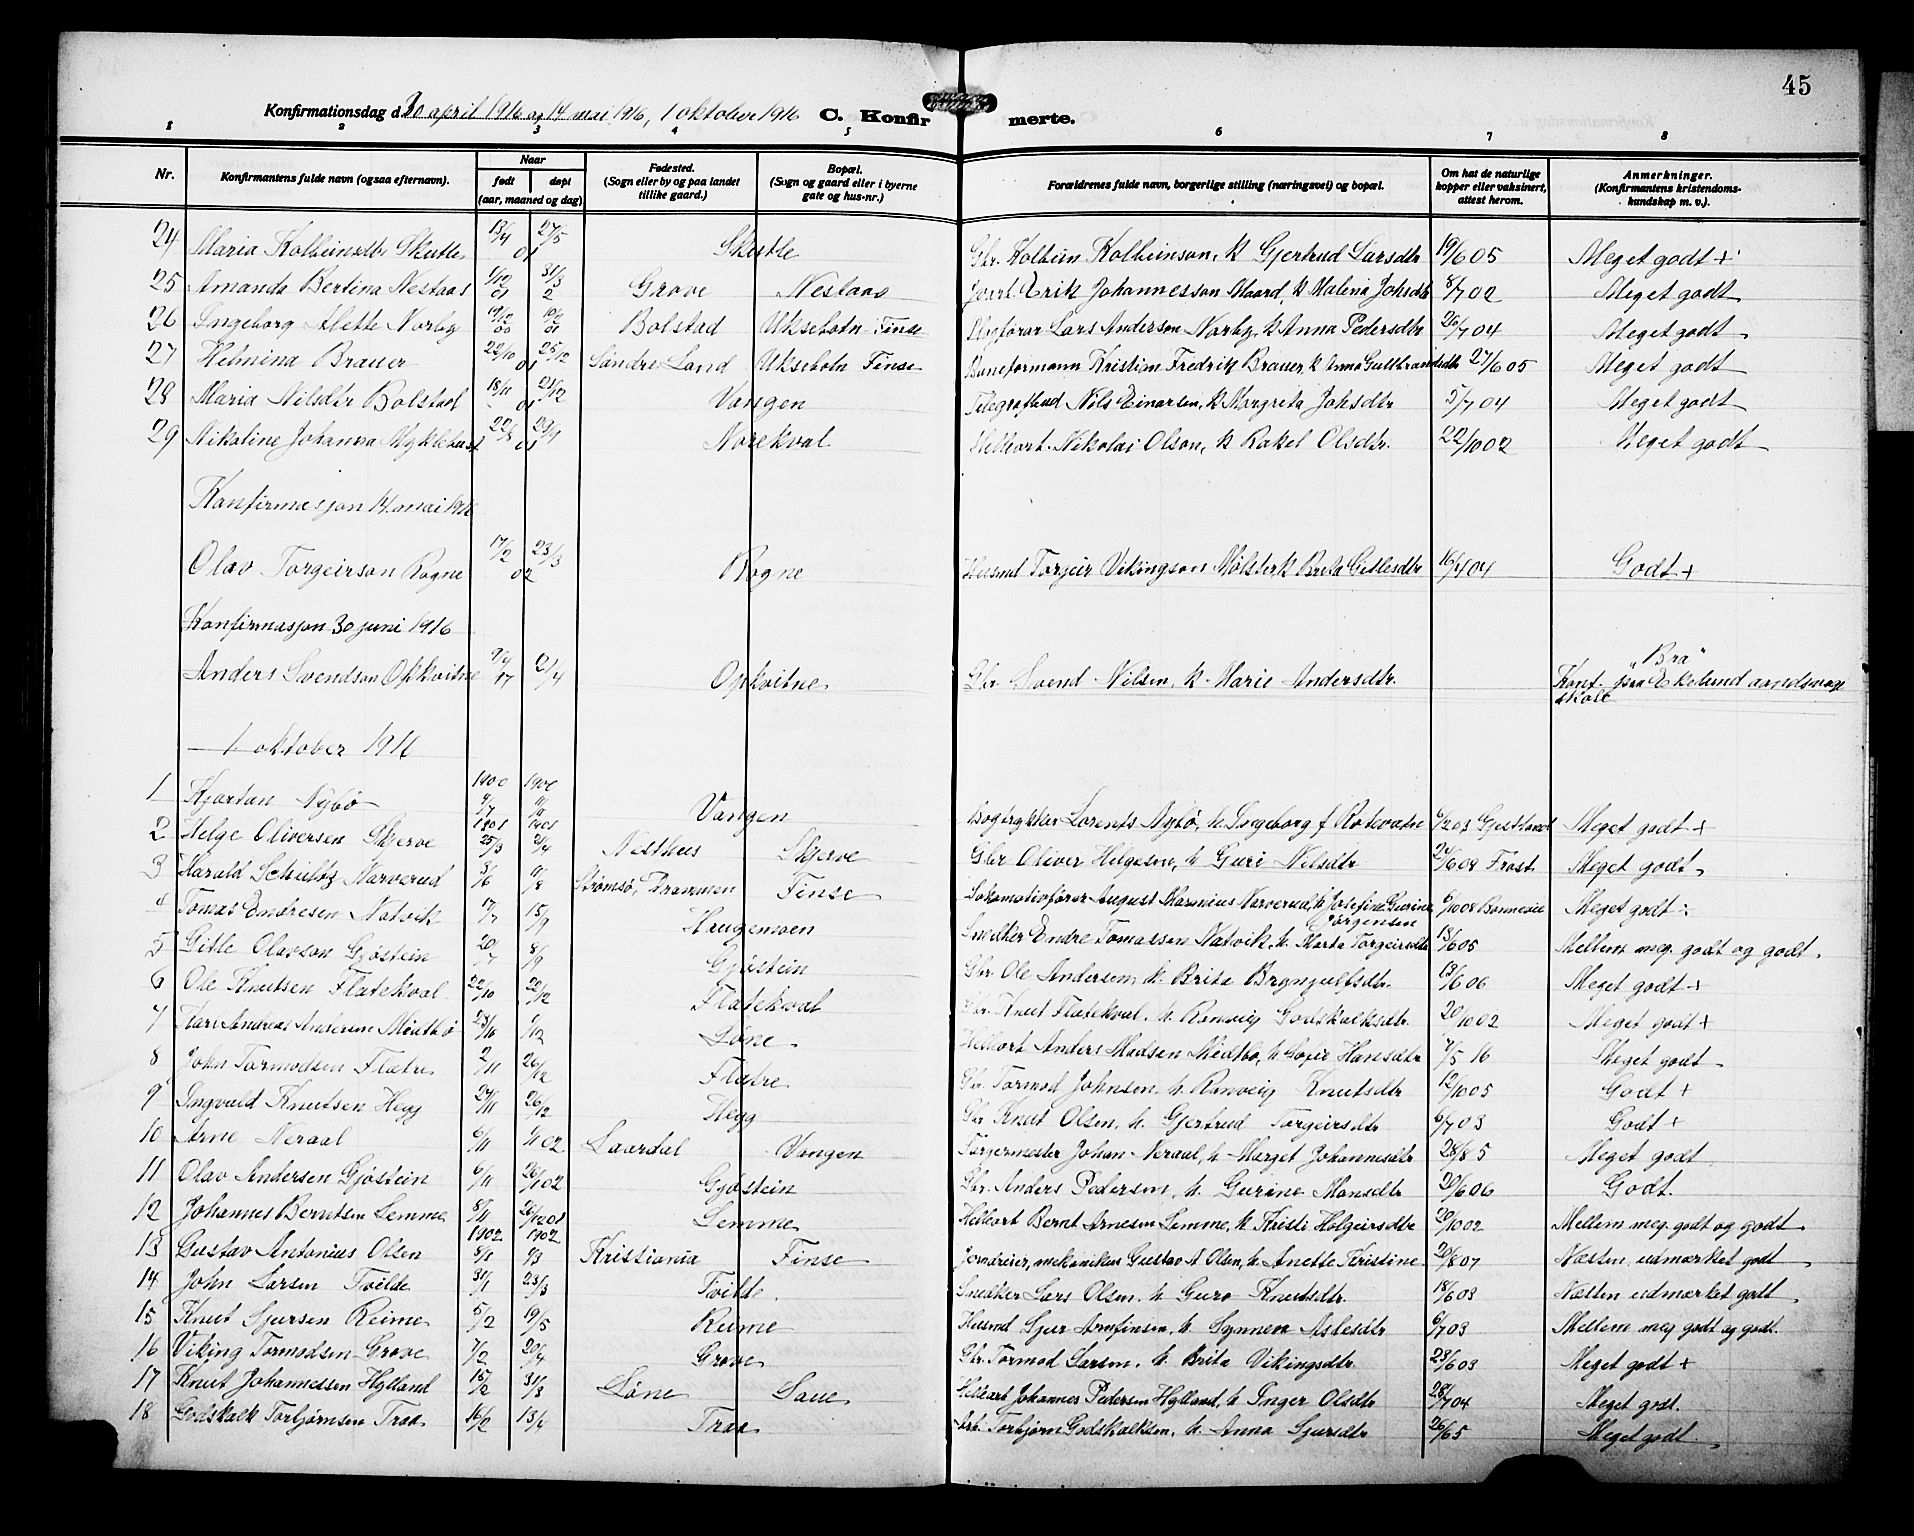 45
Konfirmationsdag d. 30 april 1916 og 14 mai 1916, 1 oktober 1916 C. Konfirmerte.
1 2 3 4 5 6 7 8
Nr. Konfirmantens fulde navn (ogsaa efternavn). Naar født døpt (aar, maaned og dag) Fødested. (Sogn eller by og paa landet tillike gaard.) Bopæl. (Sogn og gaard eller i byerne gate og hus-nr.) Forældrenes fulde navn, borgerlige stilling (næringsvei) og bopæl. Om hat de naturlige kopper eller vaksinert, attest herom. Anmerkninger. (Konfirmantens kristendomskundskap m. v.).
24 Maria Kolbeinsdtr Skutle 13/4 27/5 01 Skutle Gbr. Kolbein Kolbeinson, k Gjertrud Larsdtr 19/6 05 Meget godt +
25 Amanda Bertina Nestaas 1/12 01 31/3 2 Grove Nestaas Erik Johannesson k Malena Johsdtr 8/7 02 Meget godt
26 Ingeborg Alette Norby 19/12 00 10/2 01 Bolstad Uksebotn Finse Lars Anderson Norby, k Anna Pedersdtr 26/7 04 Meget godt
27 Helmina Brauer 22/10 25/12 01 Søndre Land Uksebotn Finse Baneformann Kristian Fredrik Brauer, k Anna Gulbrandsdtr 27/6 05 Meget godt
28 Maria Nilsdtr Bolstad 18/11 21/12 01 Vangen Nils Einarsen, k Margreta Johsdtr 5/7 04 Meget godt
29 Nikoline Johanna Myklebust 22/8 29/9 01 Norekval Helleart. Nikolai Olson, k Rakel Olsdtr. 22/10 02 Meget godt
Konfirmasjon 14. mai 1916
Olav Torgeirson Rogne 17/2 23/3 02 Rogne Husmd Torgeir Vikingson Mølster k Brita Gitlesdtr 16/4 04 Godt +
Konfirmasjon 30 juni 1916
Anders Svendson Opkvitne Opkvitne Gbr Svend Nilsen, k. Marie Andersdtr. "Bra"
Konf. paa Ekelund aandssvageskole
1 oktober 1916
1 Kjartan Nybø 1900 1900 Vangen Bogtrykker Lorents Nybø, k. Ingeborg f. Rotevatn Gjestland Meget godt +
2 Helge Oliversen Skjerve 1901 25/3 1901 21/4 Nesthus Skjerve Gbr Oliver Helgesen, k Guri Nilsdtr Frost Meget godt
3 Harald Schultz Narverud 3/6 11/8 Strømsø, Drammen Finse Lokomotivfører August Marinius Narverud, k Josefine Gurine Jørgensen Bonnevie Meget godt +
4 Tomas Endresen Natvik 17/7 15/9 Haugamoen Snedker Endre Tomassen Natvik k. Marta Torgeirsdtr 13/6 05 Mellem meg. godt og godt.
5 Gitle Olavson Gjøstein 20/7 8/9 Gjøstein Gbr. Ole Andersen k. Brita Brynjulfsdtr. 13/6 06 Meget godt +
6 Ole Knutsen Flatekval 22/10 22/12 Flatekval Gbr. Knut Flatekval, k. Ranveig Godskalksdtr. 20/10 02 Meget godt +
7 Karl Andreas Andersen Midtbø 23/10 1/12 Løne Helleart Anders Madsen Midtbø, k. Sofie Hansdtr 7/5 16 Meget godt
8 John Tormodsen Flatre 2/11 26/12 Flatre Gbr. Tormod Johnsen, k. Ranveig Knutsdtr 12/10 05 Godt +
9 Ingvald Knutsen Hegg 24/11 26/12 Hegg Gbr Knut Olsen, k. Gjertrud Torgeirsdtr 6/7 03 Godt +
10 Arne Neraal 6/11 6/1 02 Laardal Vangen Johan Neraal, k Marget Johannesdtr 28/8 5 Meget godt
11 Olav Andersen Gjøstein 6/11 26/1 02 Gjøstein Gbr. Anders Pedersen, k. Gurine Mansdtr 20/6 06 Godt.
12 Johannes Berntsen Lemme 8/11 26/12 01 Lemme Helleart Bernt Arnesen Lemme, k Kristi Holgeirsdtr 20/10 02 Mellem meg. godt og godt
13 Gustav Antonius Olsen 1902 8/1 1902 9/3 Kristiania Finse Jordeier, mekanikus Gustav A Olsen, k. Anette Kristine 20/8 07 Næsten udmerket godt
14 John Larsen Tvilde 31/1 23/3 Tvilde. Snedker Lars Olsen. k. Guro Knutsdtr. 18/6 03 Næsten udmerket godt
15 Knut Sjursen Reime 5/2 19/5 Reime Husmd Sjur Arnfinsen, k. Synneva Aslesdtr 6/7 03 Mellem meg godt og godt.
16 Viking Tormodsen Grove 7/2 20/4 Grove Gbr. Tormod Larsen, k. Brita Vikingsdtr 23/6 03 Meget godt +
17 Knut Johannessen Hylland 15/2 31/3 Løne Saue Helleart Johannes Pedersen Hylland, k Inger Olsdtr 28/7 04 Meget godt.
18 Godskalk Torbjørnsen Traa 16/2 13/4 Traa Arb. Torbjørn Godskalksen, k. Anna Sjursdtr 26/6 5 Meget godt